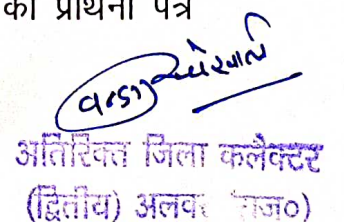 का प्रार्थना पत्र
अतिरिक्त जिला कलैक्टर
(द्वितीय) अलवर राज०)